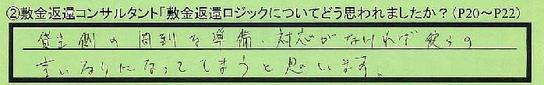 ②敷金返還コンサルタント「敷金返還ロジックについてどう思われましたか？（P20～P22）
貸主側の周到な準備・対応がなければ彼らの
言いなりになってしまうと思います。